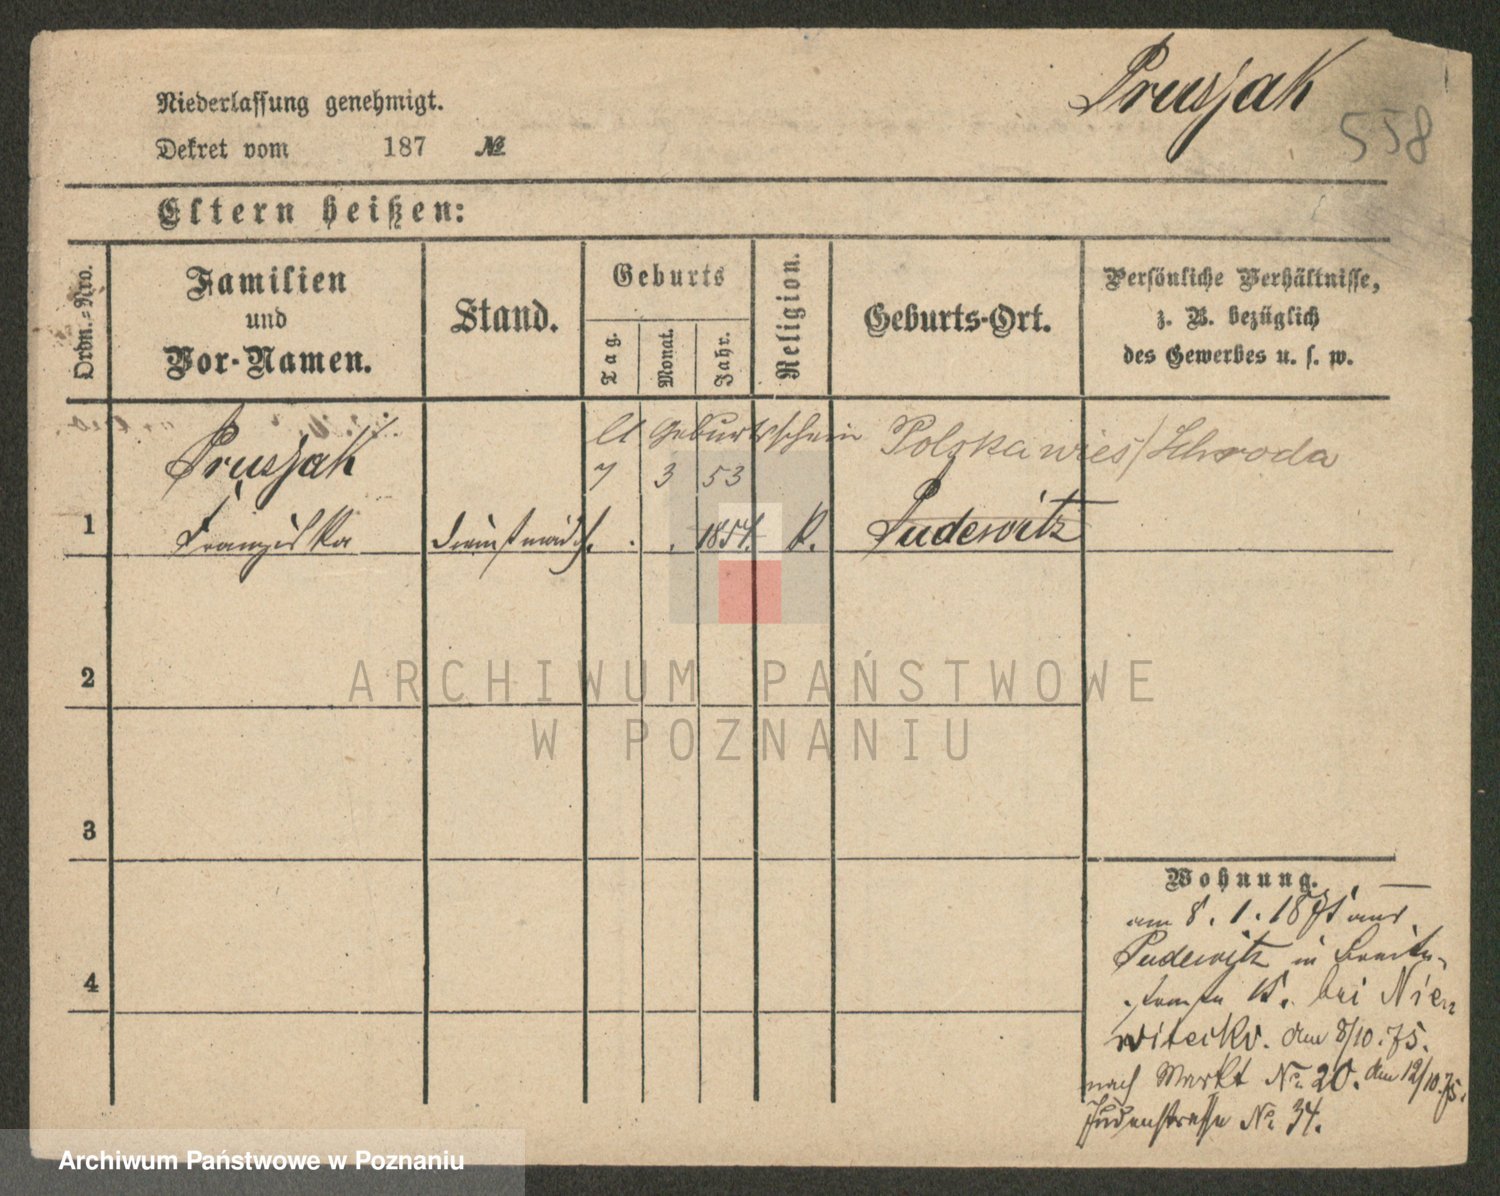 Prusjak
558
Niederlassung genehmigt.
Dekret vom 187 №
Eltern heißen:
Ordn.-Nro.
Familien
und
Vor-Namen.
Stand.
Geburts
Tag.
Monat.
Jahr.
Religion.
Geburts-Ort.
Persönliche Verhältnisse,
z. B. bezüglich
des Gewerbes u. s. w.
Prusjak
Geburtsschein Polskawies/Schroda
7 3 53
1 Franziska Dienstmädch. . . 1854. K. Pudewitz
2
3
4
Wohnung.
am 8. 1. 1875 aus
Pudewitz in Breite-
strasse 15. bei Nie
witecki. den 8/10.75.
nach Markt No 20. den 12/10.75.
Judenstrasse No 34.
ARCHIWUM PAŃSTWOWE
W POZNANIU
Archiwum Państwowe w Poznaniu